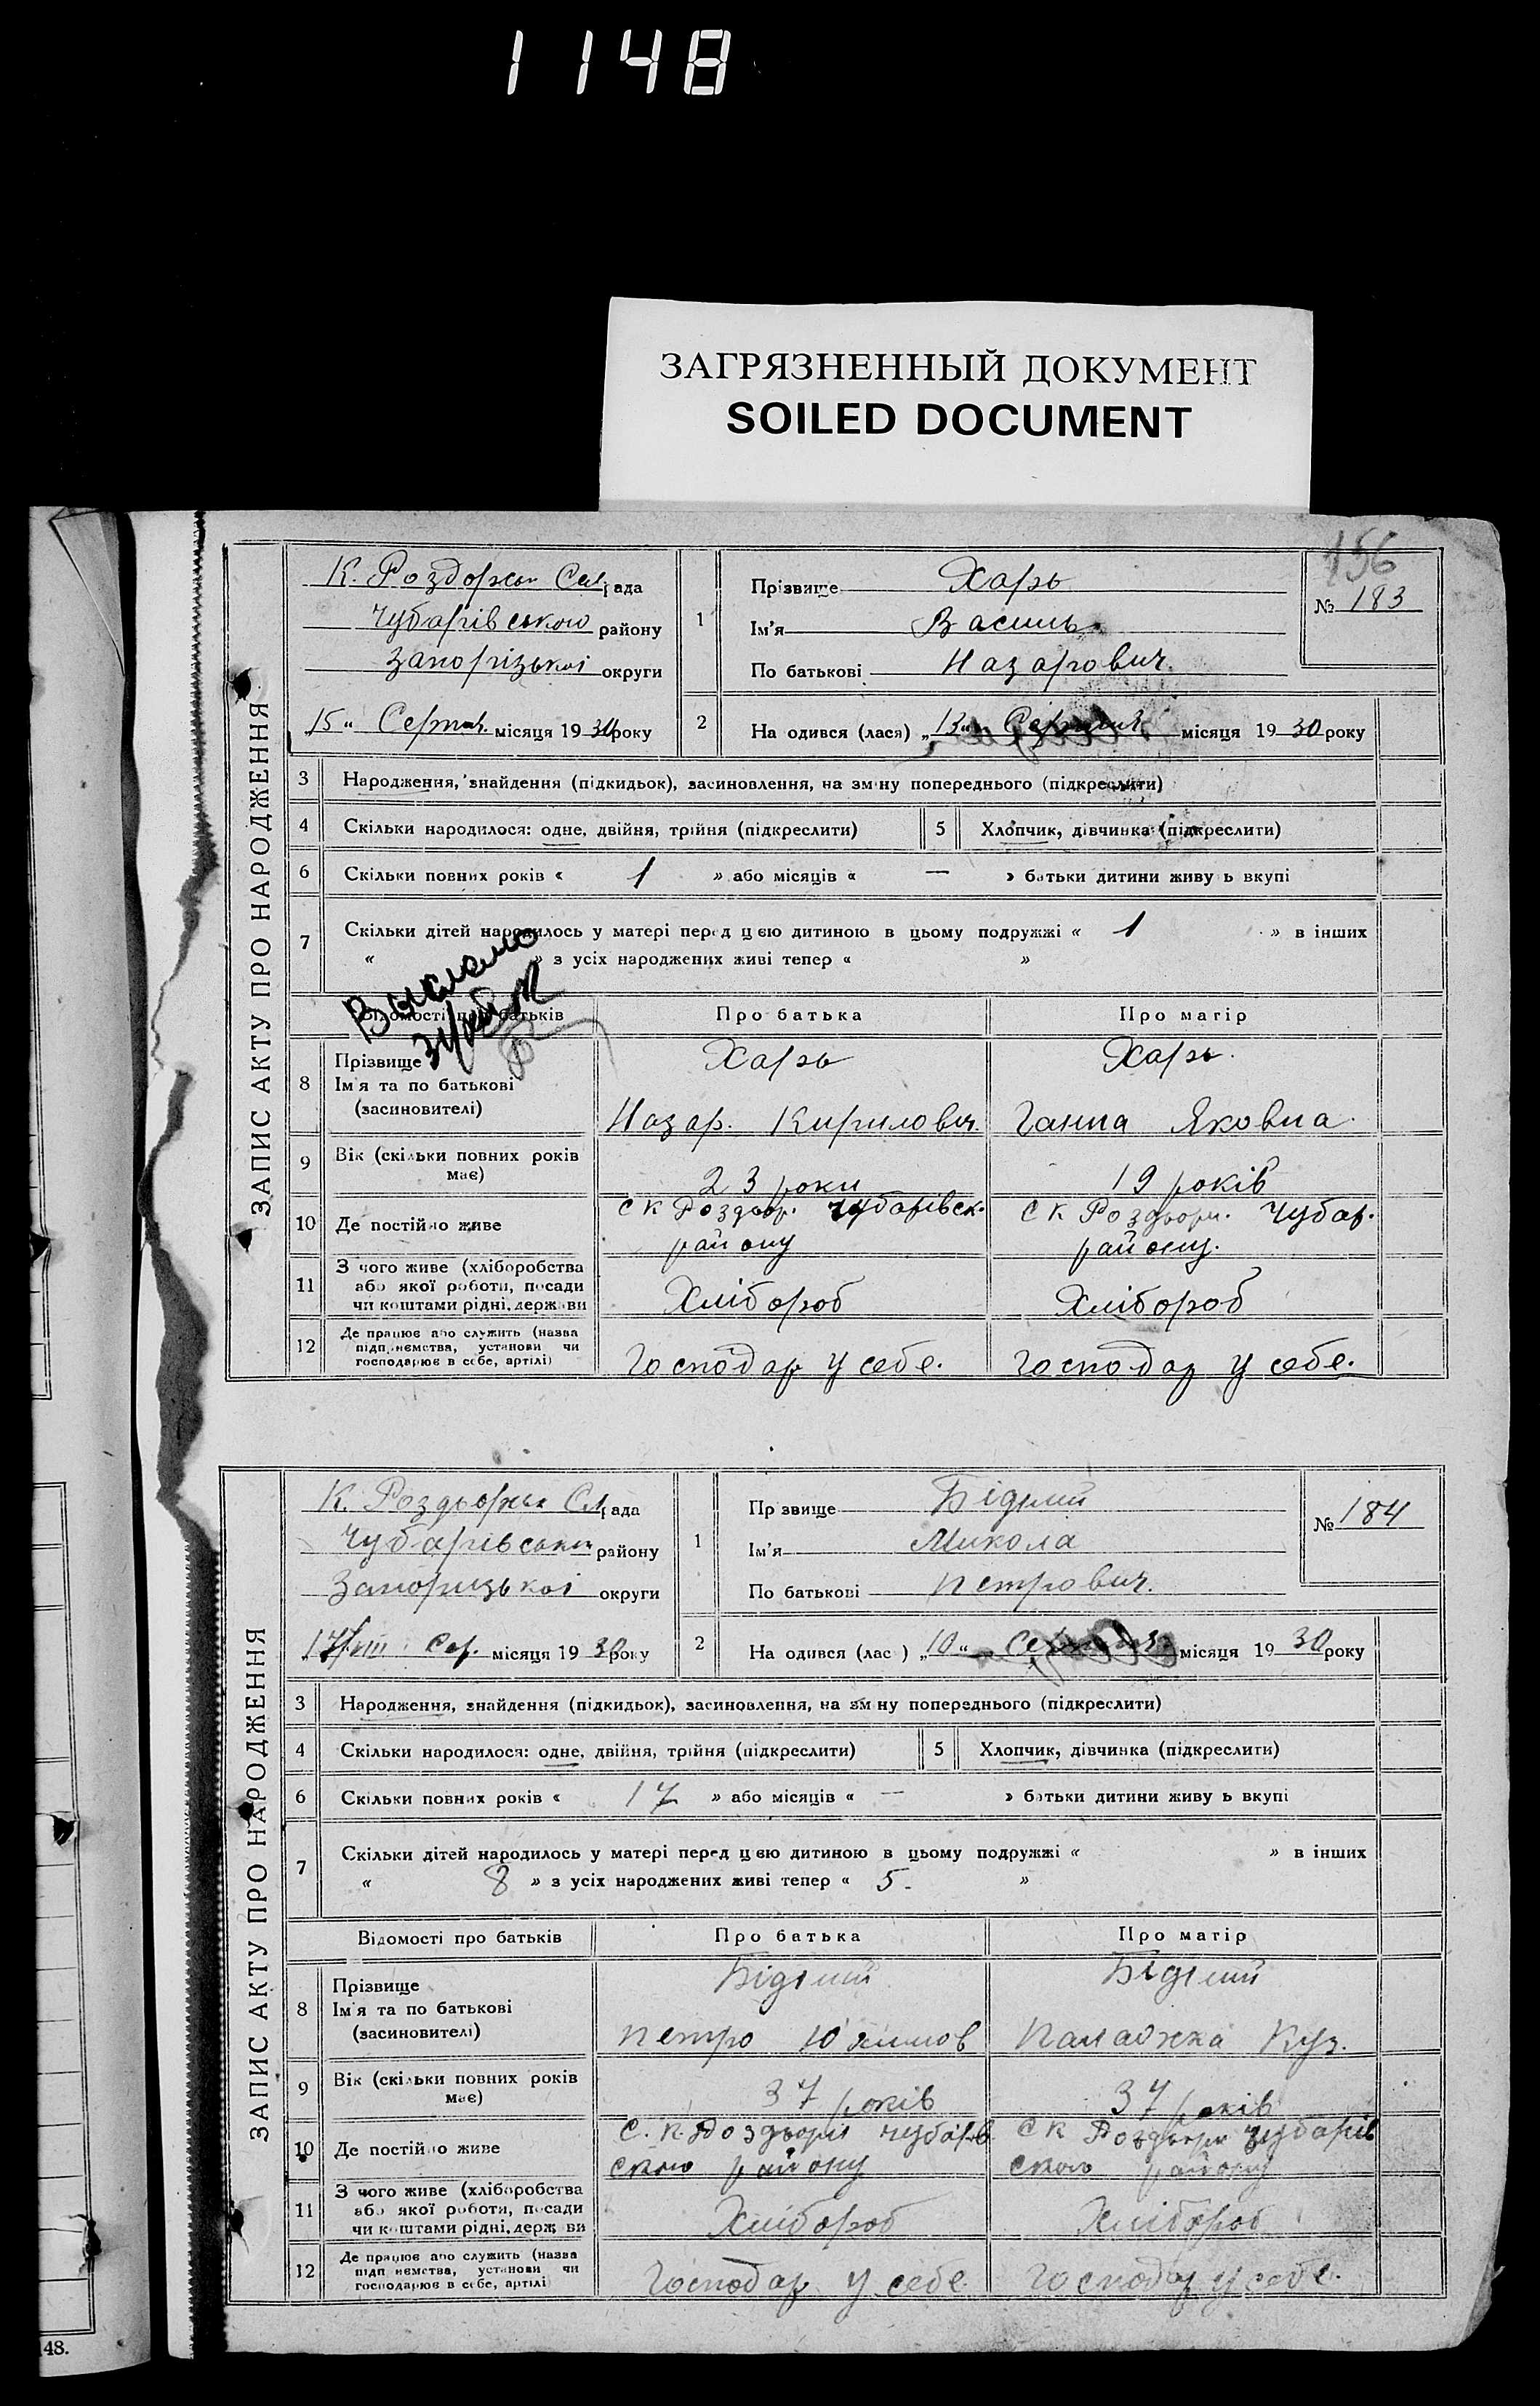 1148
ЗАГРЯЗНЕННЫЙ ДОКУМЕНТ
SOILED DOCUMENT
156
ЗАПИС АКТУ ПРО НАРОДЖЕННЯ
К. Роздорськ Сіл. рада
Чубарівського району
Запорізької округи
15" Серпня місяця 1930 року
1
Прізвище Харь
Ім'я Василь
По батькові Назарович.
№ 183
2
На одився (лася) „13" Серпня місяця 1930 року
3 Народження, знайдення (підкидьок), засиновлення, на зміну попереднього (підкреслити)
4 Скільки народилося: одне, двійня, трійня (підкреслити)
5 Хлопчик, дівчинка (підкреслити)
6 Скільки повних років « 1 » або місяців « — » батьки дитини живу ь вкупі
7 Скільки дітей народилось у матері перед цією дитиною в цьому подружжі « 1 » в інших
« » з усіх народжених живі тепер « »
Відомості про батьків Про батька Про матір
8 Прізвище Харь Харь.
Ім'я та по батькові
(засиновителі) Назар. Кирилович. Ганна Яковна.
9 Вік (скільки повних років
має) 23 роки 19 років
10 Де постійно живе с К Роздор. Чубарівск. району с К Роздорн. Чубар. району.
11 З чого живе (хліборобства
або якої роботи, посади
чи коштами рідні, держави Хлібороб Хлібороб
12 Де працює або служить (назва
підприємства, установи чи
господарює в себе, артілі) Господар у себе. Господар у себе.
ЗАПИС АКТУ ПРО НАРОДЖЕННЯ
К. Роздорськ Сіл. рада
Чубарівськ району
Запоризької округи
17/VIII Сер. місяця 1930 року
1
Пр звище
Ім'я Микола
По батькові Петрович.
№ 184
2
На одився (лас ) „10" Серпня місяця 1930 року
3 Народження, знайдення (підкидьок), засиновлення, на зм ну попереднього (підкреслити)
4 Скільки народилося: одне, двійня, трійня (підкреслити)
5 Хлопчик, дівчинка (підкреслити)
6 Скільки повних років « 17 » або місяців « — » батьки дитини живу ь вкупі
7 Скільки дітей народилось у матері перед цією дитиною в цьому подружжі « » в інших
« 8 » з усіх народжених живі тепер « 5. »
Відомості про батьків Про батька Про матір
8 Прізвище
Ім'я та по батькові
(засиновителі) Петро Юхимов Палажка Куз.
9 Вік (скільки повних років
має) 37 років 37 років
10 Де постійно живе С. К. Роздорн Чубарів ського району с К Роздорн Чубарів ського району
11 З чого живе (хліборобства
або якої роботи, посади
чи коштами рідні, держ ви Хлібороб Хлібороб
12 Де працює або служить (назва
підп иємства, установи чи
господарює в себе, артілі Господар у себе Господар у себе.
48.